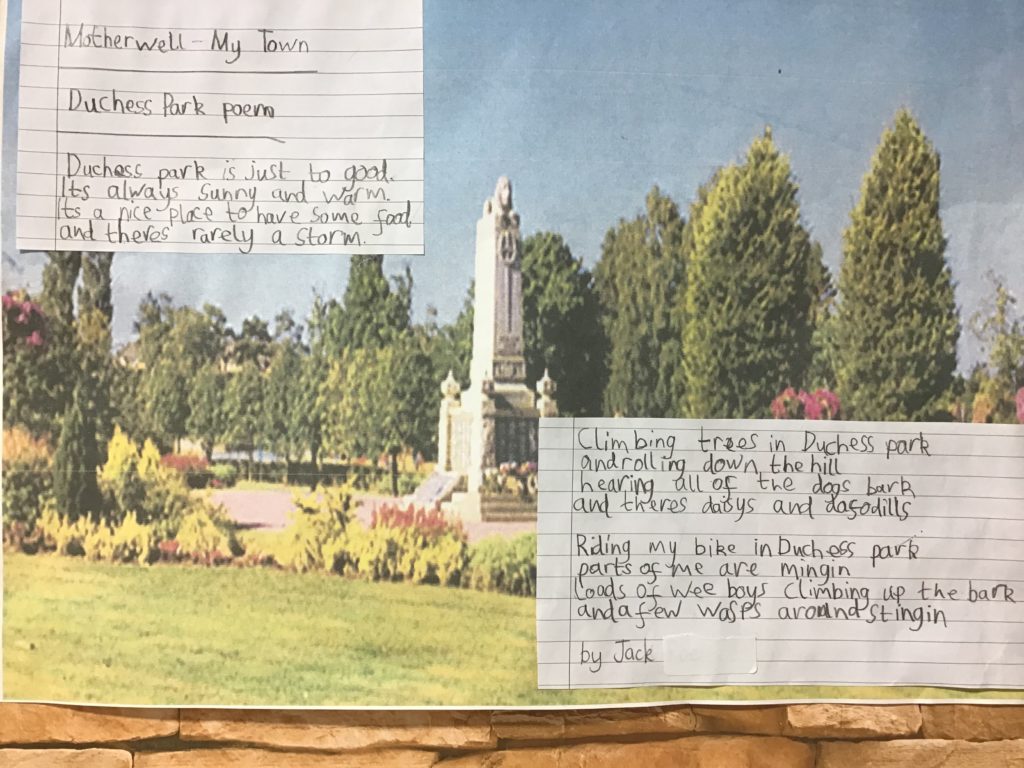 Motherwell - My Town
Duchess Park poem
Duchess park is just to good.
Its always sunny and warm.
Its a nice place to have some food
and theres rarely a storm.
Climbing trees in Duchess park
and rolling down the hill
hearing all of the dogs bark
and theres daisys and dafodills
Riding my bike in Duchess park
parts of me are mingin
Loads of wee boys climbing up the bark
and a few wasps around stingin
by Jack